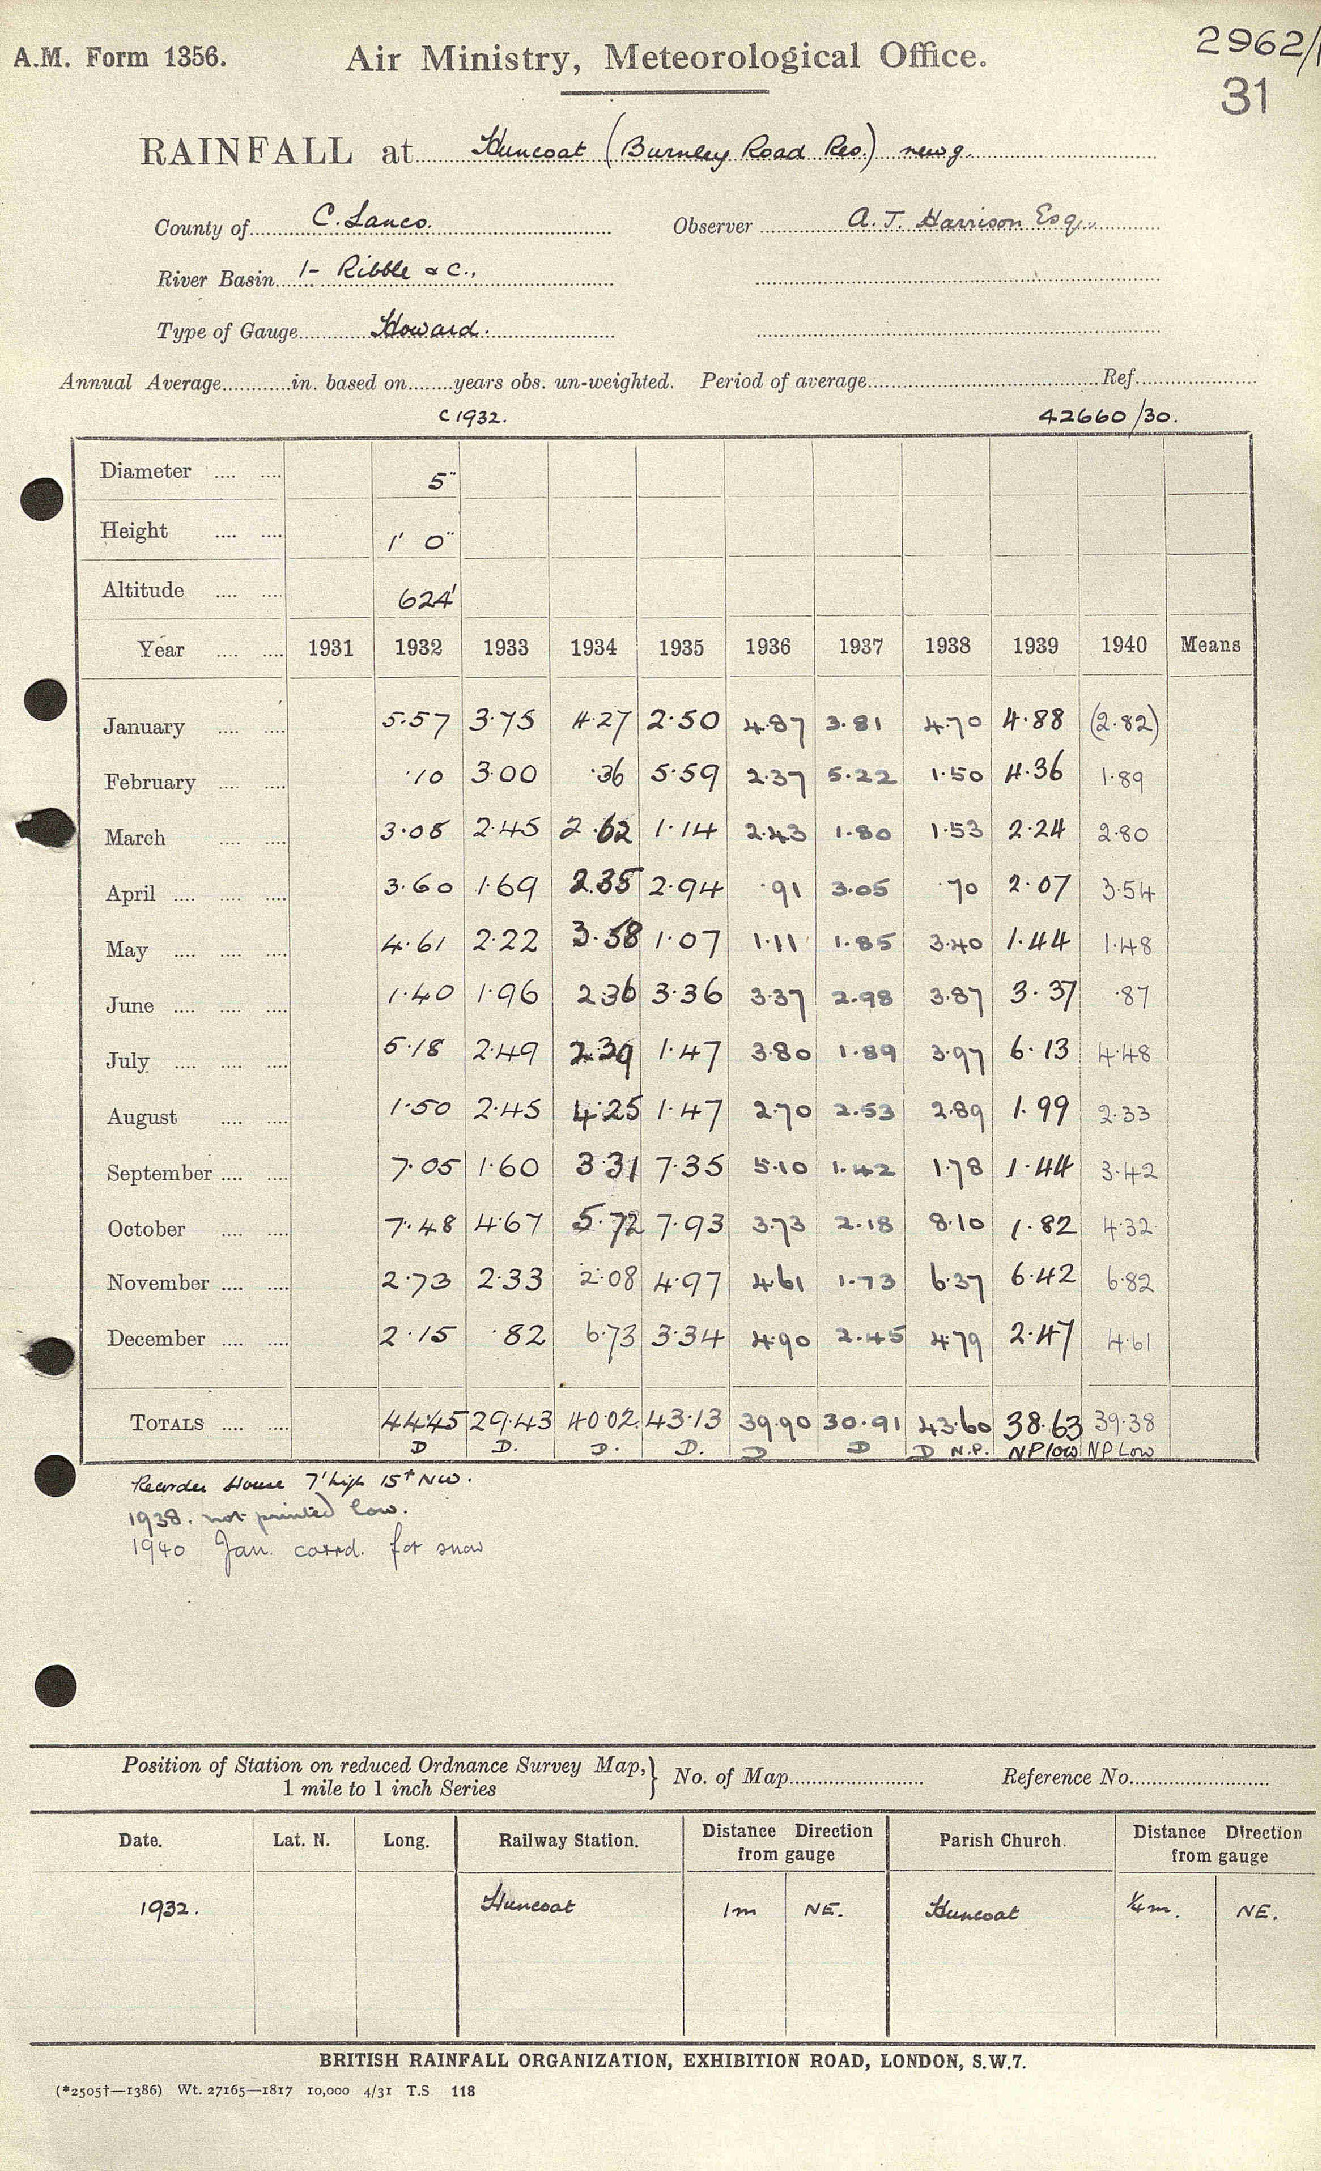 A.M. Form 1356. Air Ministry, Meteorological Office. 2962/1
31
RAINFALL at Huncoat (Burnley Road Res.) new g.
County of C. Lancs. Observer A. J. Harrison Esq.,
River Basin 1- Ribble &c.,
Type of Gauge Howard.
Annual Average in. based on years obs. un-weighted. Period of average Ref.
c 1932. 42660/30.
Diameter 5"
Height 1' 0"
Altitude 624'
Year 1931 1932 1933 1934 1935 1936 1937 1938 1939 1940 Means
January 5.57 3.75 4.27 2.50 4.87 3.81 4.70 4.88 (2.82)
February .10 3.00 .36 5.59 2.37 5.22 1.50 4.36 1.89
March 3.08 2.45 2.62 1.14 2.43 1.80 1.53 2.24 2.80
April 3.60 1.69 2.35 2.94 .91 3.05 .70 2.07 3.54
May 4.61 2.22 3.58 1.07 1.11 1.85 3.40 1.44 1.48
June 1.40 1.96 2.36 3.36 3.37 2.98 3.87 3.37 .87
July 5.18 2.49 2.39 1.47 3.80 1.89 3.97 6.13 4.48
August 1.50 2.45 4.25 1.47 2.70 2.53 2.89 1.99 2.33
September 7.05 1.60 3.31 7.35 5.10 1.42 1.78 1.44 3.42
October 7.48 4.67 5.72 7.93 3.73 2.18 8.10 1.82 4.32
November 2.73 2.33 2.08 4.97 4.61 1.73 6.37 6.42 6.82
December 2.15 .82 6.73 3.34 4.90 2.45 4.79 2.47 4.61
TOTALS 44.45 29.43 40.02 43.13 39.90 30.91 43.60 38.63 39.38
D D. D. D. D D D N.P. NP low NP Low
Recorder House 7' high 15ft NW.
1938. not printed low.
1940 Jan. corrd. for snow
Position of Station on reduced Ordnance Survey Map,} No. of Map Reference No.
1 mile to 1 inch Series
Date. Lat. N. Long. Railway Station. Distance Direction from gauge Parish Church. Distance Direction from gauge
1932. Huncoat 1m NE. Huncoat ¼m. NE.
BRITISH RAINFALL ORGANIZATION, EXHIBITION ROAD, LONDON, S.W.7.
(*2505†—1386) Wt. 27165—1817 10,000 4/31 T.S 118